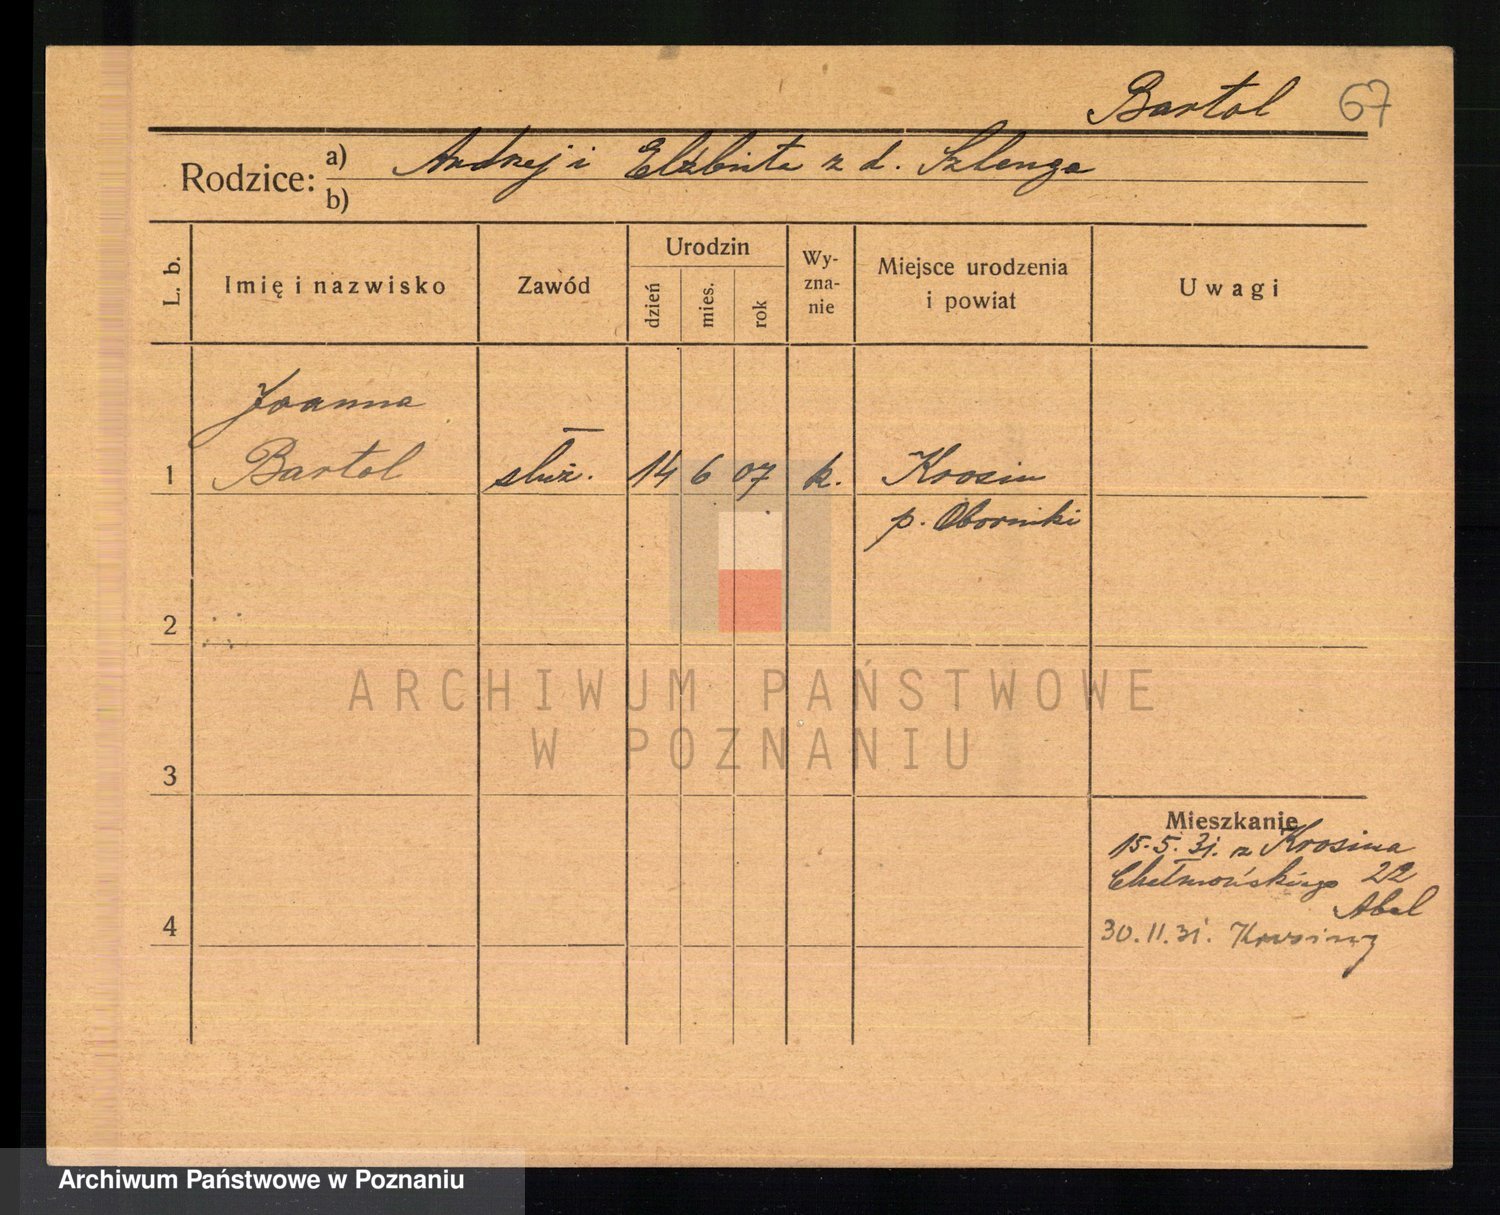 Bartol 67
Rodzice: a) Andrzej i Elżbieta z d. Szlenga
b)
L. b. Imię i nazwisko Zawód Urodzin dzień mies. rok Wyznanie Miejsce urodzenia i powiat Uwagi
Joanna
1 Bartol służ. 14 6 07 k. Krosin
p. Oborniki
2
ARCHIWUM PAŃSTWOWE
W POZNANIU
3
Mieszkanie
15.5.31. z Krosina
Chełmońskiego 22
Abel
4
30.11.31. Krosiny
Archiwum Państwowe w Poznaniu